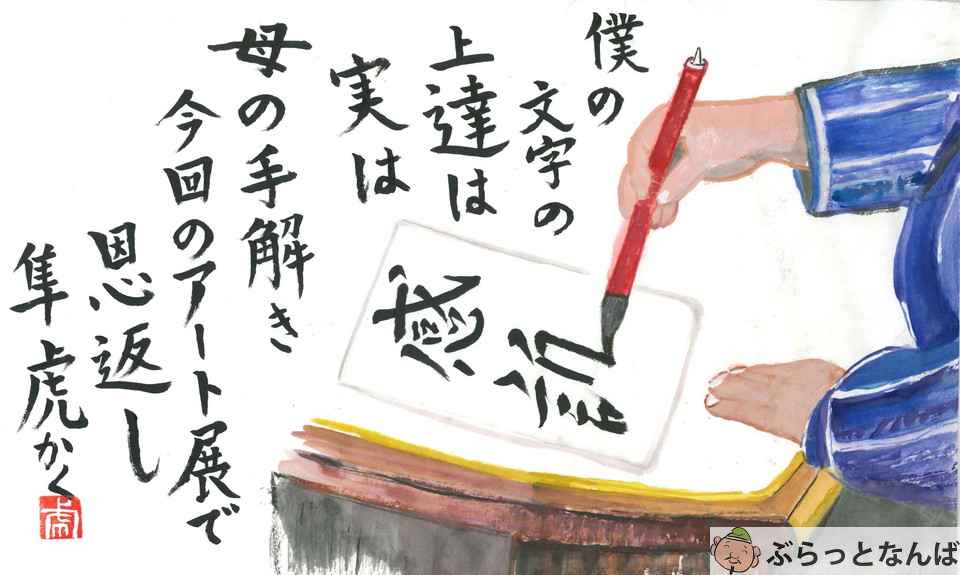 僕の
文字の
上達は
実は
母の手解き
今回のアート展で
恩返し
隼虎かく
虎
感
ぶらっとなんば